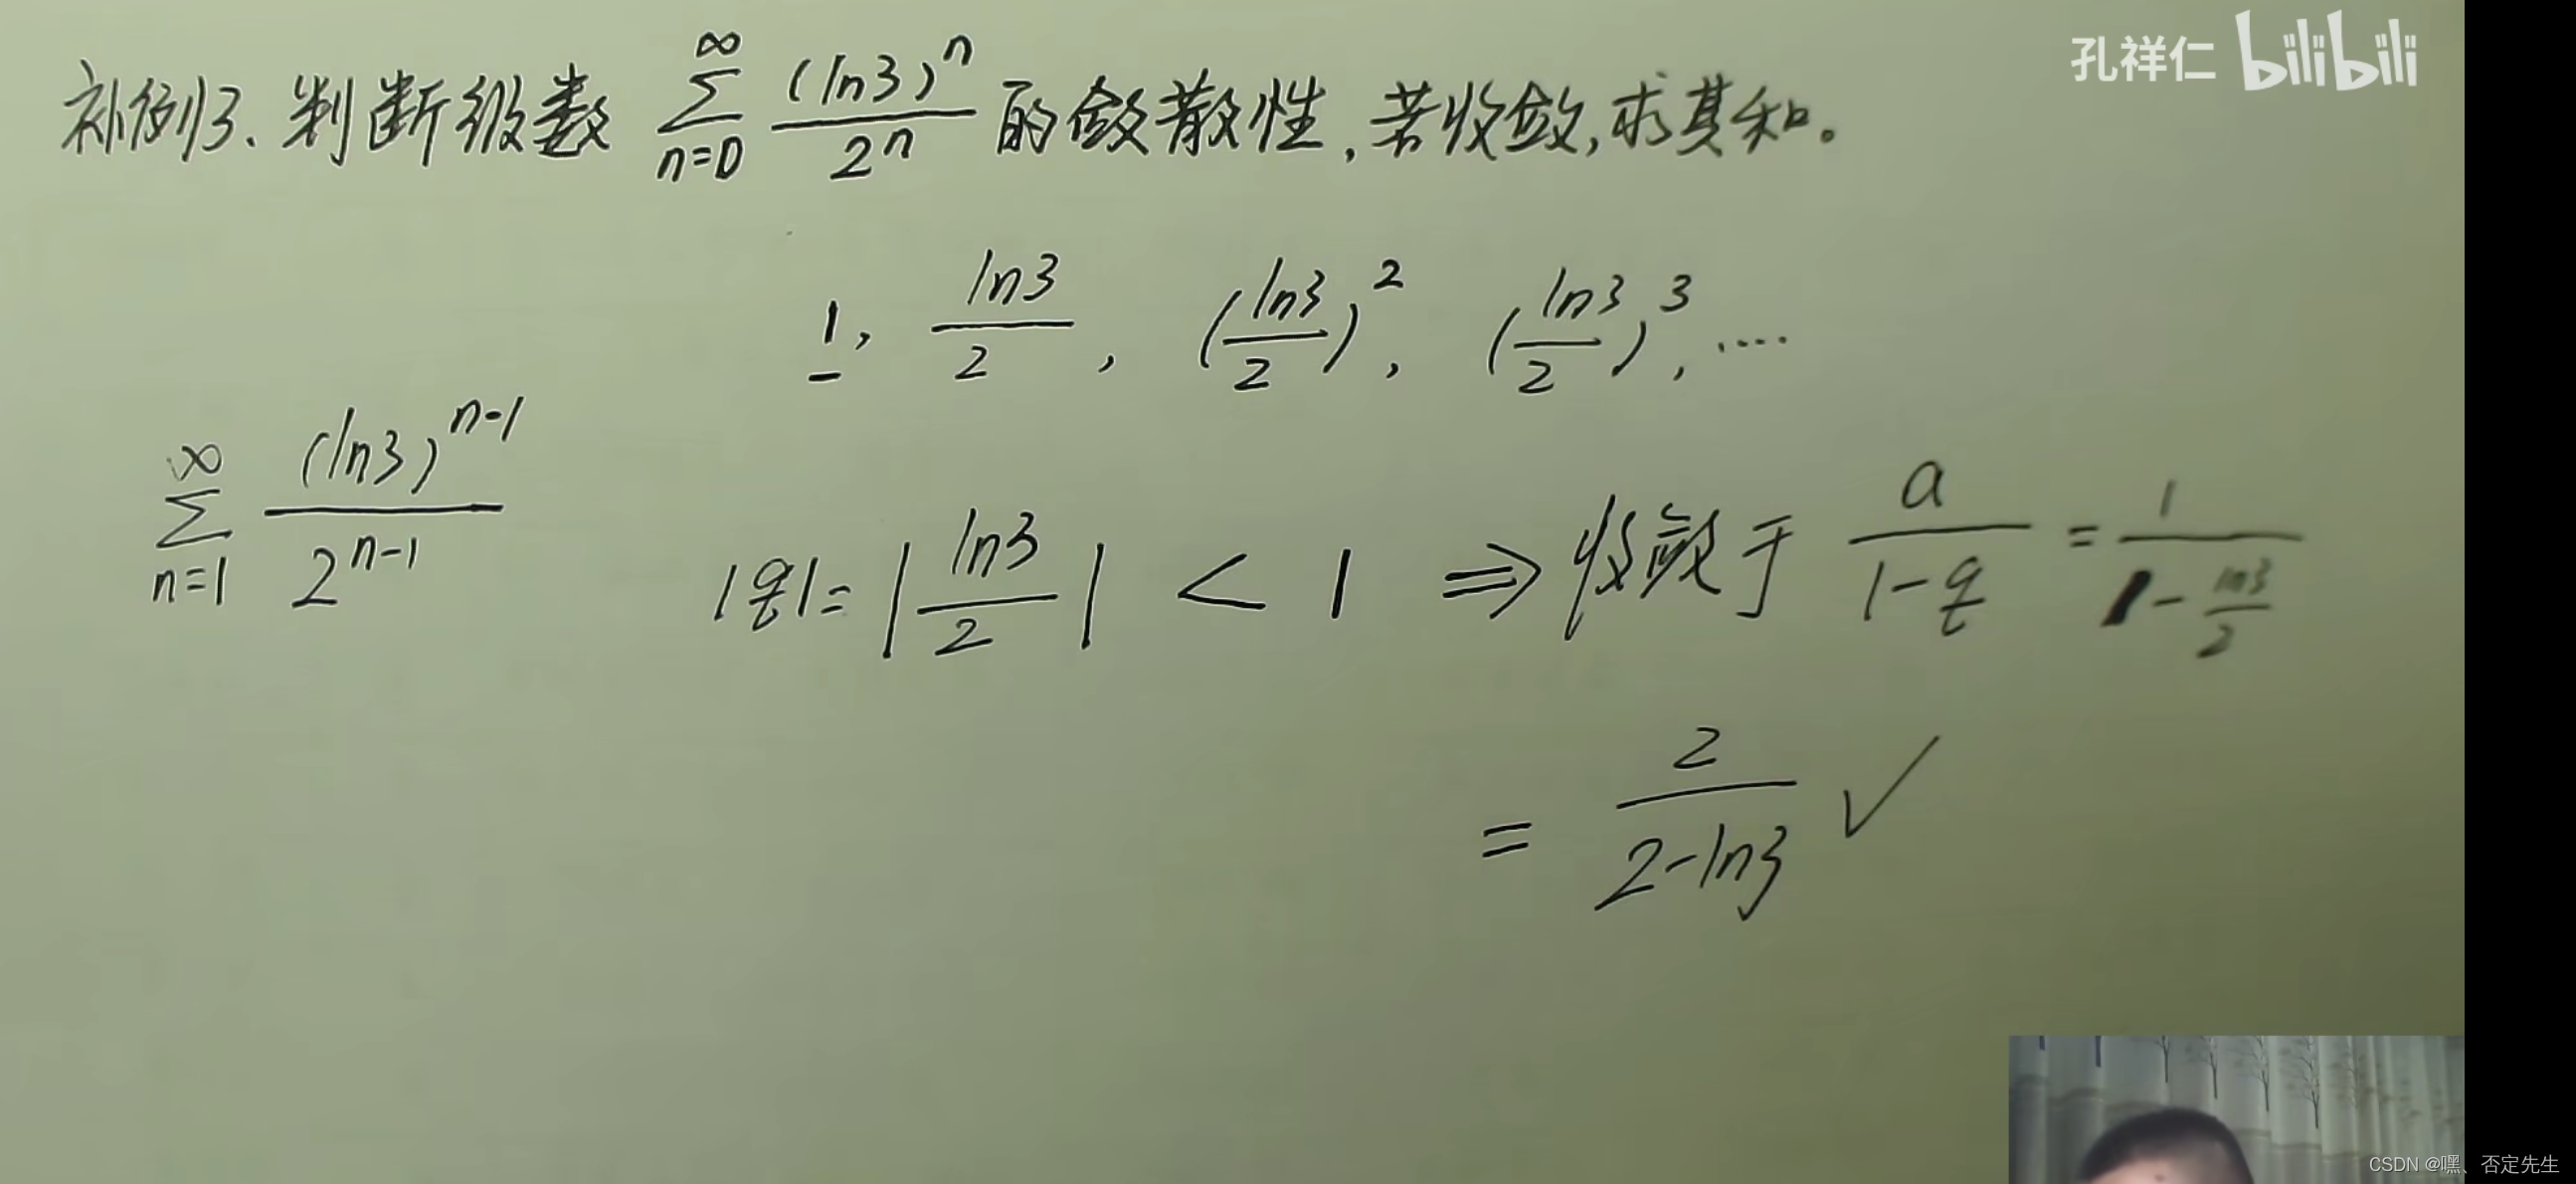 孔祥仁 bilibili
补例3. 判断级数 ∑_{n=0}^{∞} (ln3)^n / 2^n 的敛散性, 若收敛, 求其和。
1, ln3/2, (ln3/2)^2, (ln3/2)^3, ....
∑_{n=1}^{∞} (ln3)^{n-1} / 2^{n-1}
|q| = |ln3/2| < 1 ⇒ 收敛于 a/(1-q) = 1/(1 - ln3/2)
= 2/(2-ln3) ✓
CSDN @嘿、否定先生